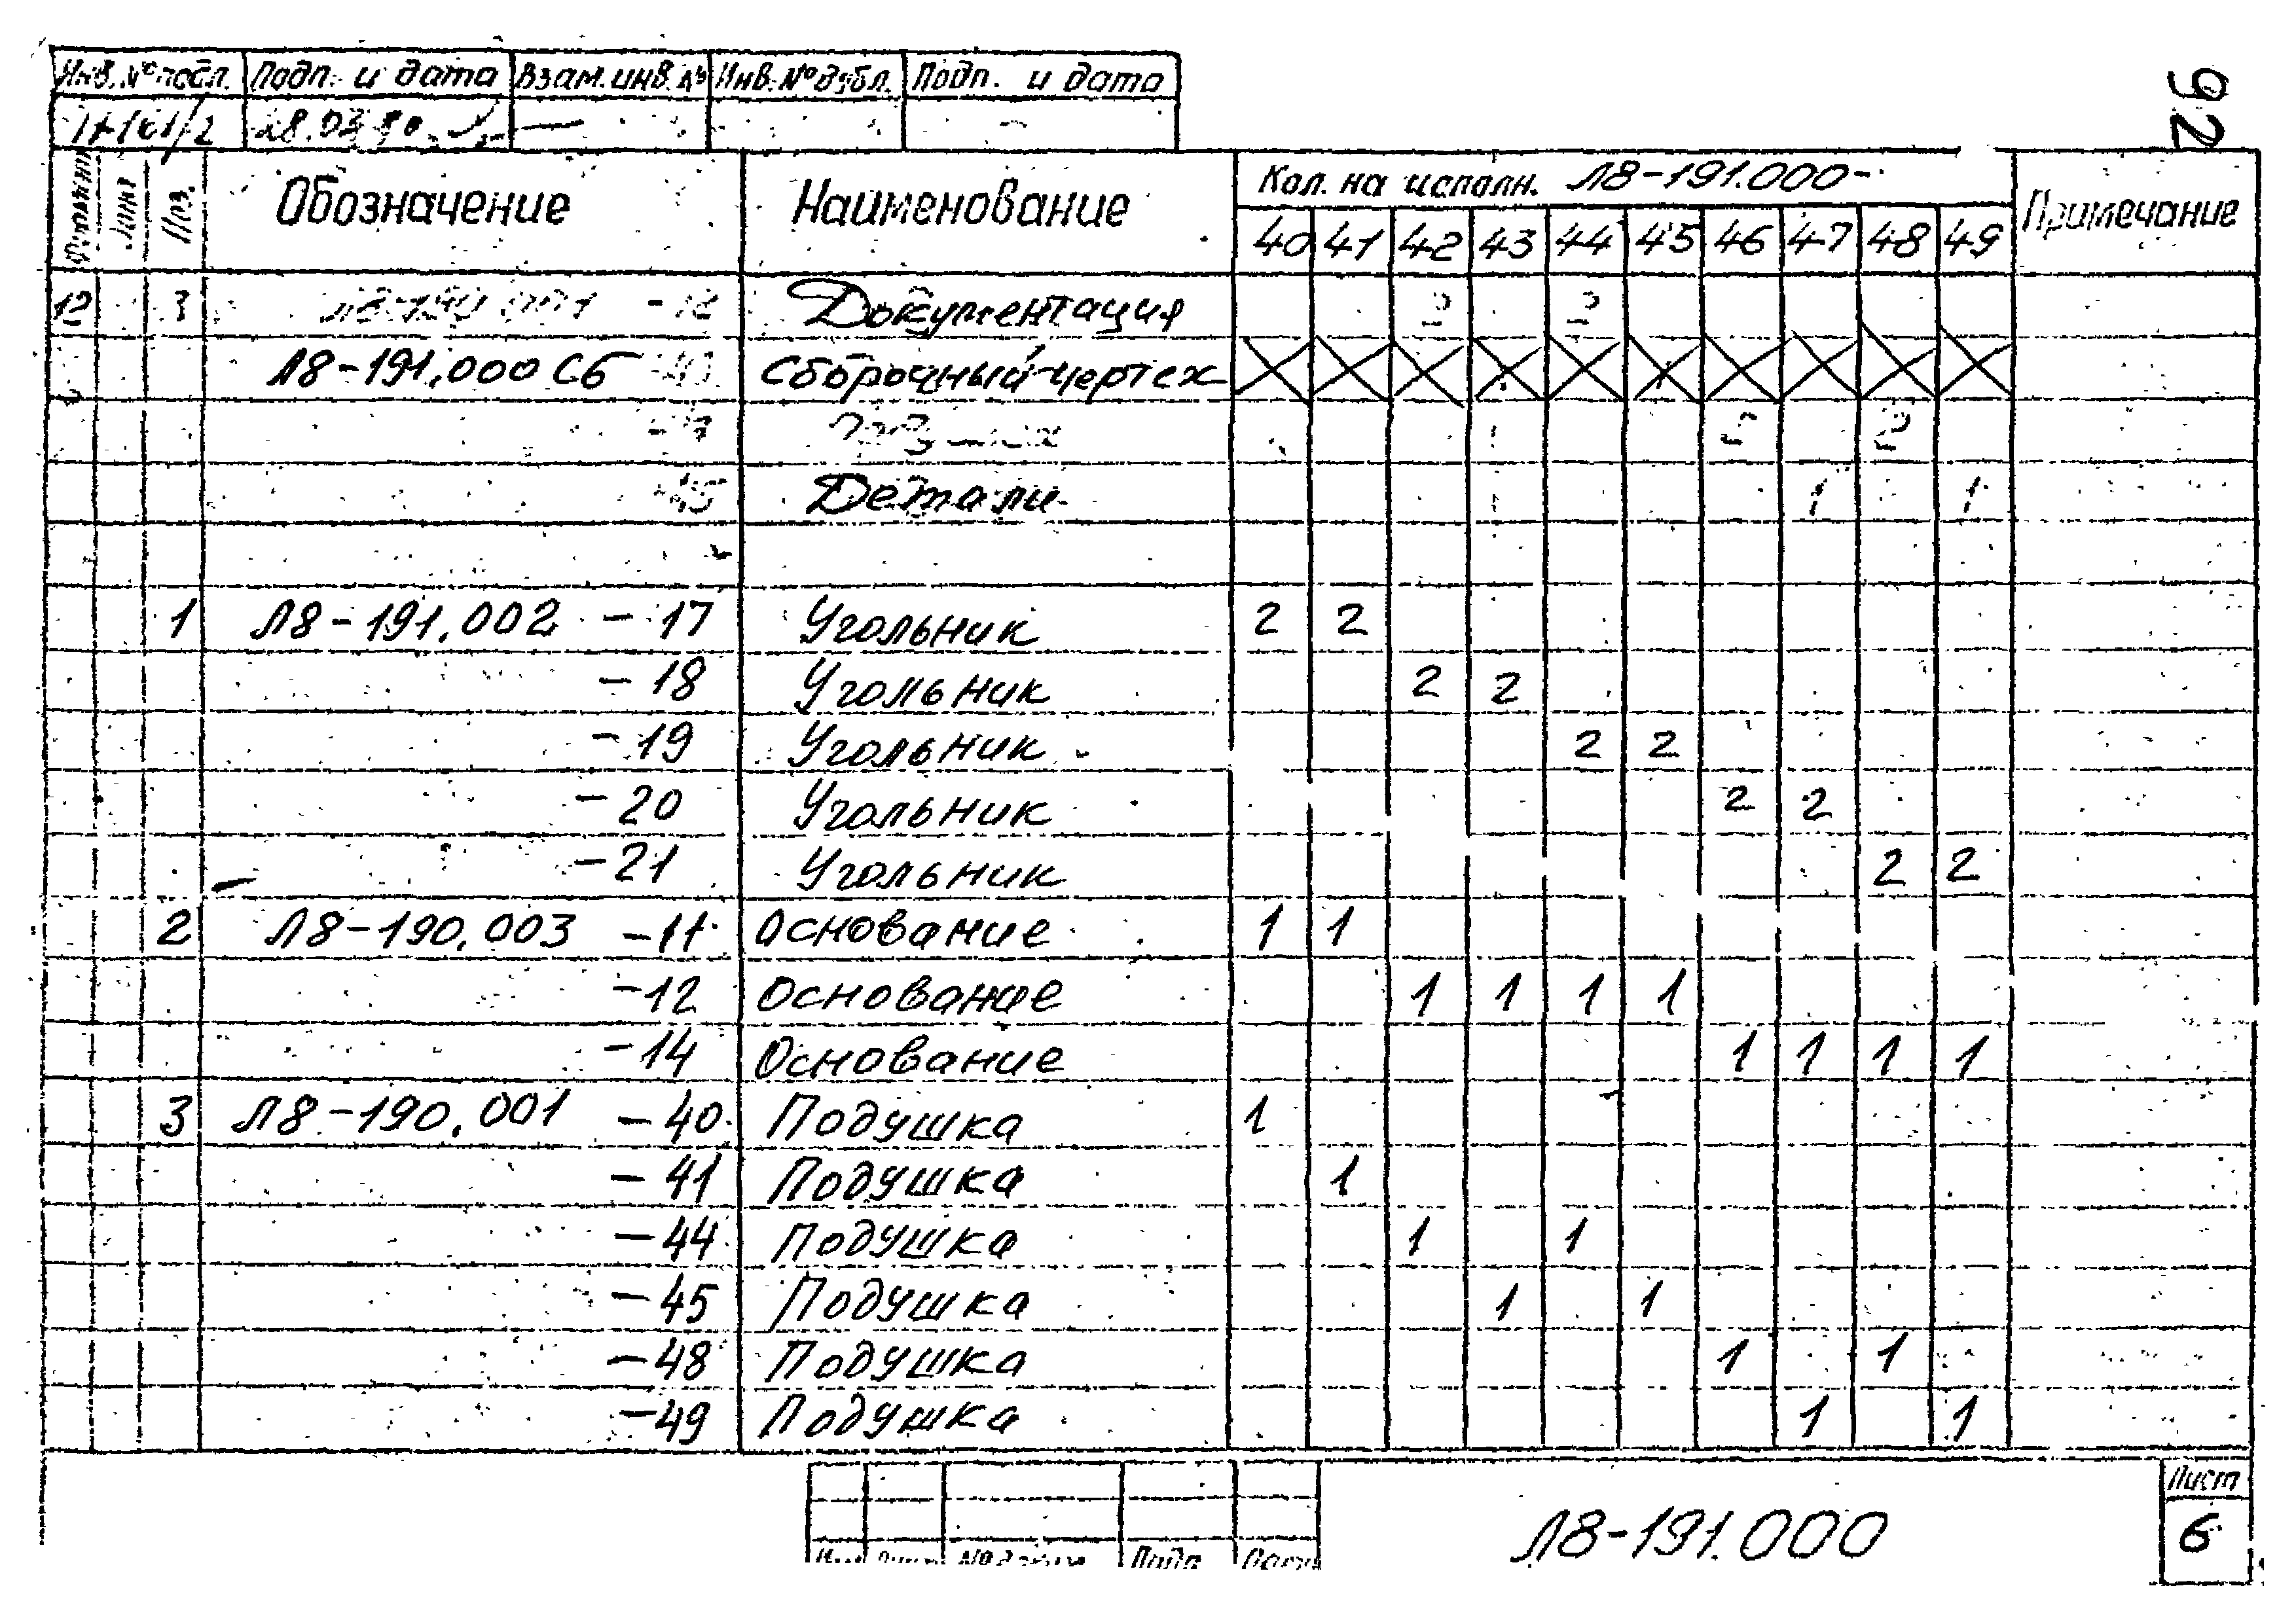 92
Инв. № подл. Подп. и дата Взам. инв. № Инв. № дубл. Подп. и дата
28.03.80
Поз. Обозначение Наименование Кол. на исполн. Л8-191.000- Примечание
40 41 42 43 44 45 46 47 48 49
12 3 Документация
Л8-191.000 Сб Сборочный чертеж X X X X X X X X X X
Детали
1 Л8-191.002 -17 Угольник 2 2
-18 Угольник 2 2
-19 Угольник 2 2
-20 Угольник 2 2
-21 Угольник 2 2
2 Л8-190.003 -11 Основание 1 1
-12 Основание 1 1 1 1
-14 Основание 1 1 1 1
3 Л8-190.001 -40 Подушка 1
-41 Подушка 1
-44 Подушка 1 1
-45 Подушка 1 1
-48 Подушка 1 1
-49 Подушка 1 1
Л8-191.000 Лист
6